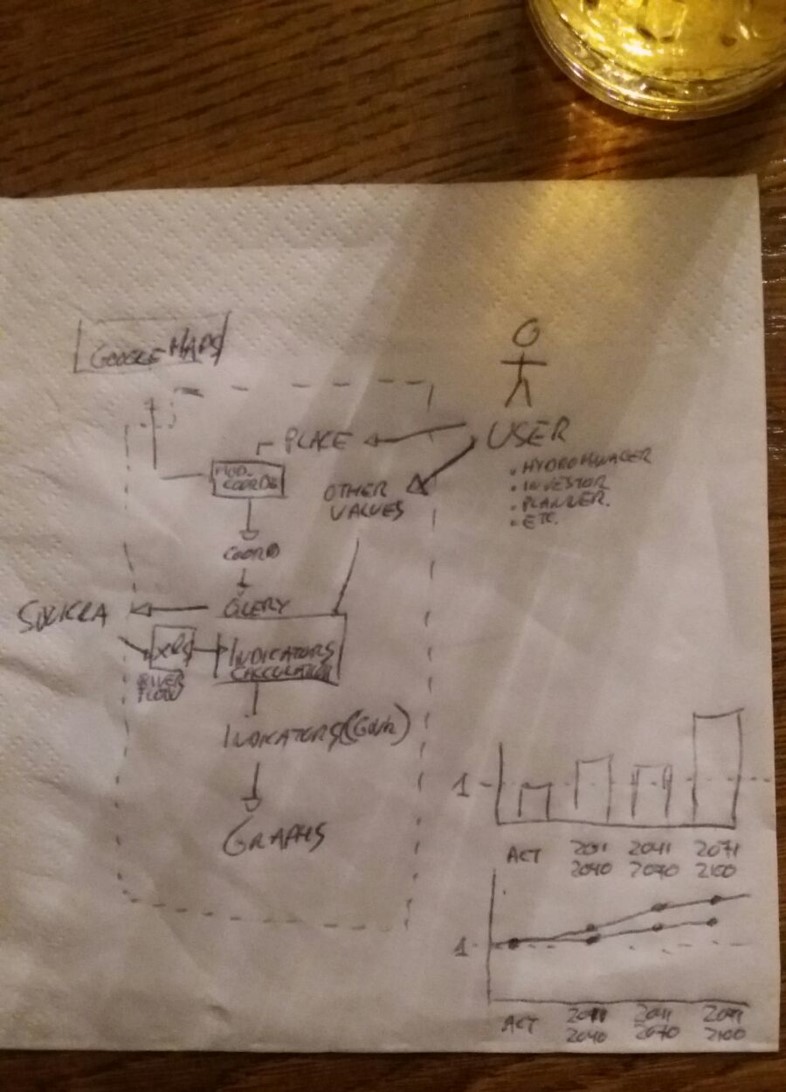 GOOGLE MAPS
USER
PLACE
• HYDROMANAGER
• INVESTOR
• PLANNER.
• ETC.
MOD.
COORDS
OTHER
VALUES
COORD
QUERY
INDICATORS
CALCULATION
RIVER
FLOW
INDICATORS
GRAPHS
1
ACT
2011
2040
2041
2070
2071
2100
1
ACT
2011
2040
2041
2070
2071
2100